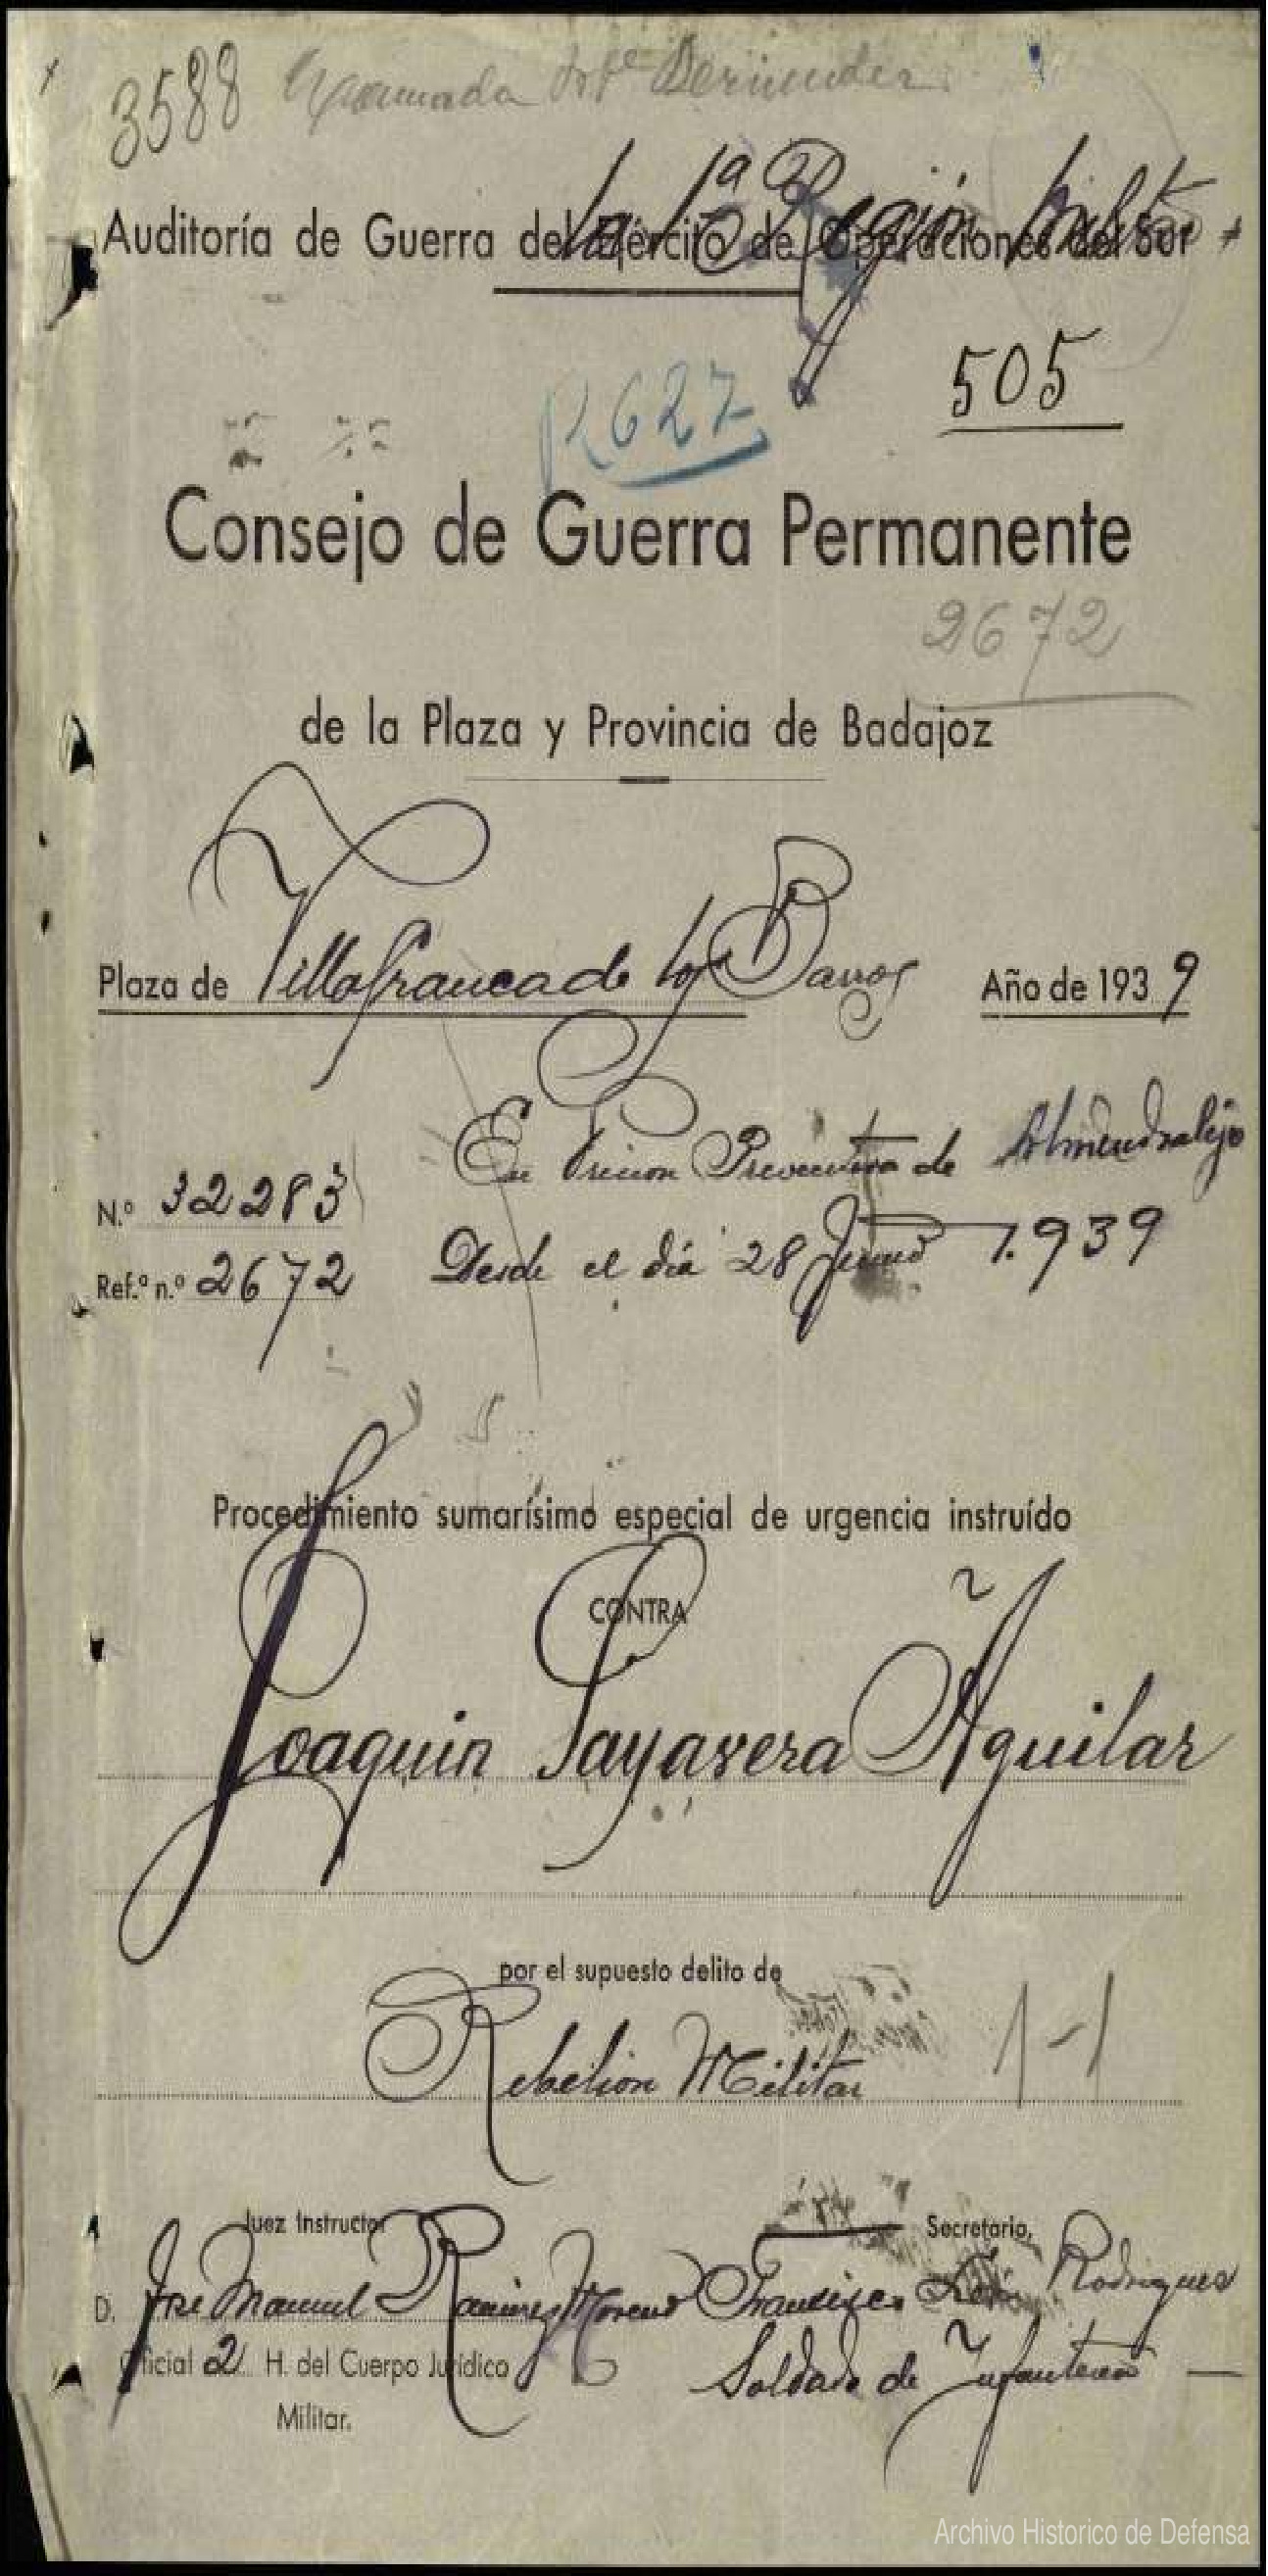 3588
Auditoría de Guerra del Ejército de Operaciones del Sur
la 1ª Región Militar
505
2627
Consejo de Guerra Permanente
2672
de la Plaza y Provincia de Badajoz
Plaza de Villafranca de los Barros Año de 1939
En Prision Preventiva de Almendralejo
N.º 32283
Desde el día 28 Junio 1.939
Ref.ª n.º 2672
Procedimiento sumarísimo especial de urgencia instruído
CONTRA
Joaquin Sayavera Aguilar
por el supuesto delito de
Rebelion Militar 1-1
Juez Instructor Secretario,
D. Jose Manuel Ramirez Moreno Francisco Rodriguez
Oficial 2º H. del Cuerpo Jurídico Soldado de Infanteria
Militar.
Archivo Historico de Defensa